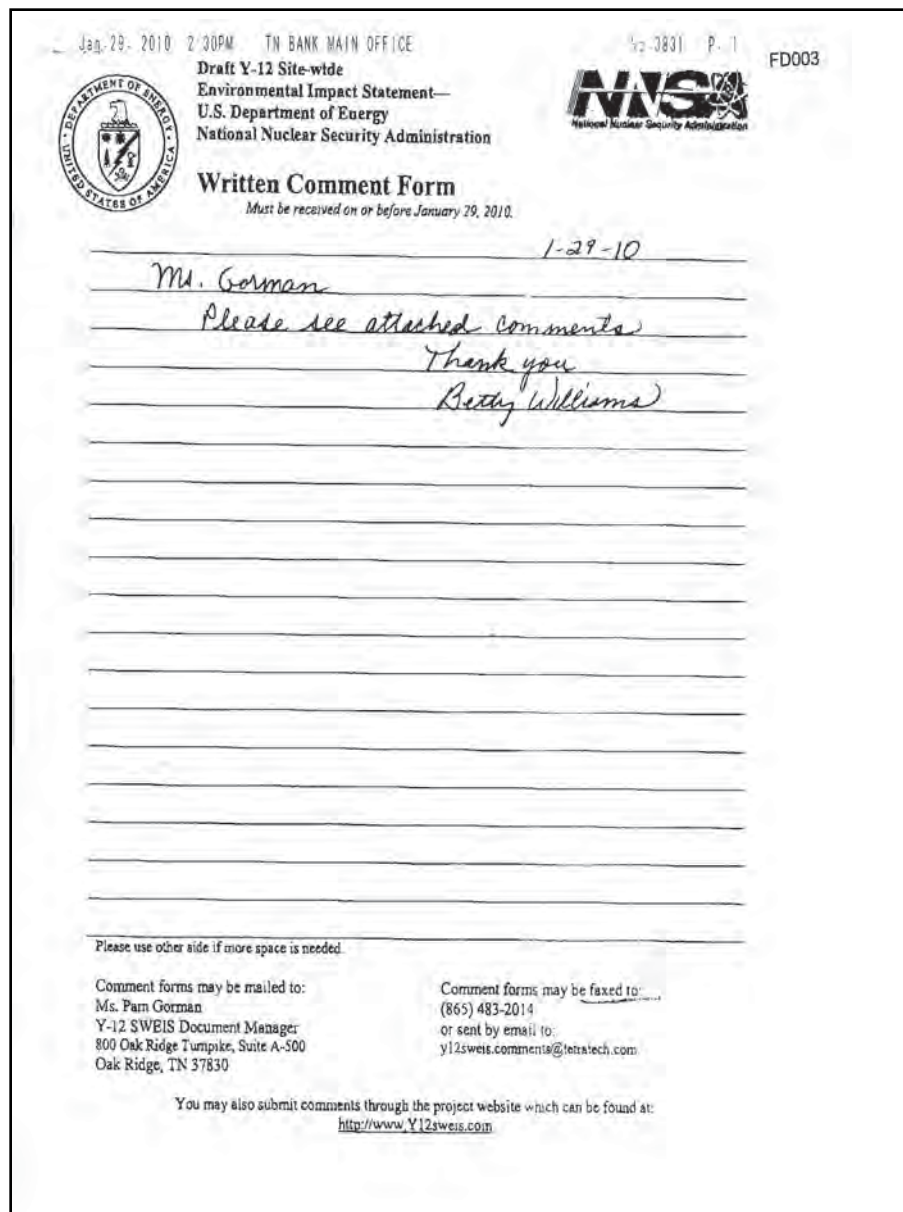 Jan. 29. 2010 2:30PM TN BANK MAIN OFFICE No. 3831 P. 1
FD003
DEPARTMENT OF ENERGY
UNITED STATES OF AMERICA
Draft Y-12 Site-wide
Environmental Impact Statement—
U.S. Department of Energy
National Nuclear Security Administration
NNSA
National Nuclear Security Administration
Written Comment Form
Must be received on or before January 29, 2010.
1-29-10
Ms. Gorman
Please see attached comments
Thank you
Betty Williams
Please use other side if more space is needed.
Comment forms may be mailed to:
Ms. Pam Gorman
Y-12 SWEIS Document Manager
800 Oak Ridge Turnpike, Suite A-500
Oak Ridge, TN 37830
Comment forms may be faxed to:
(865) 483-2014
or sent by email to:
y12sweis.comments@tetratech.com
You may also submit comments through the project website which can be found at:
http://www.Y12sweis.com